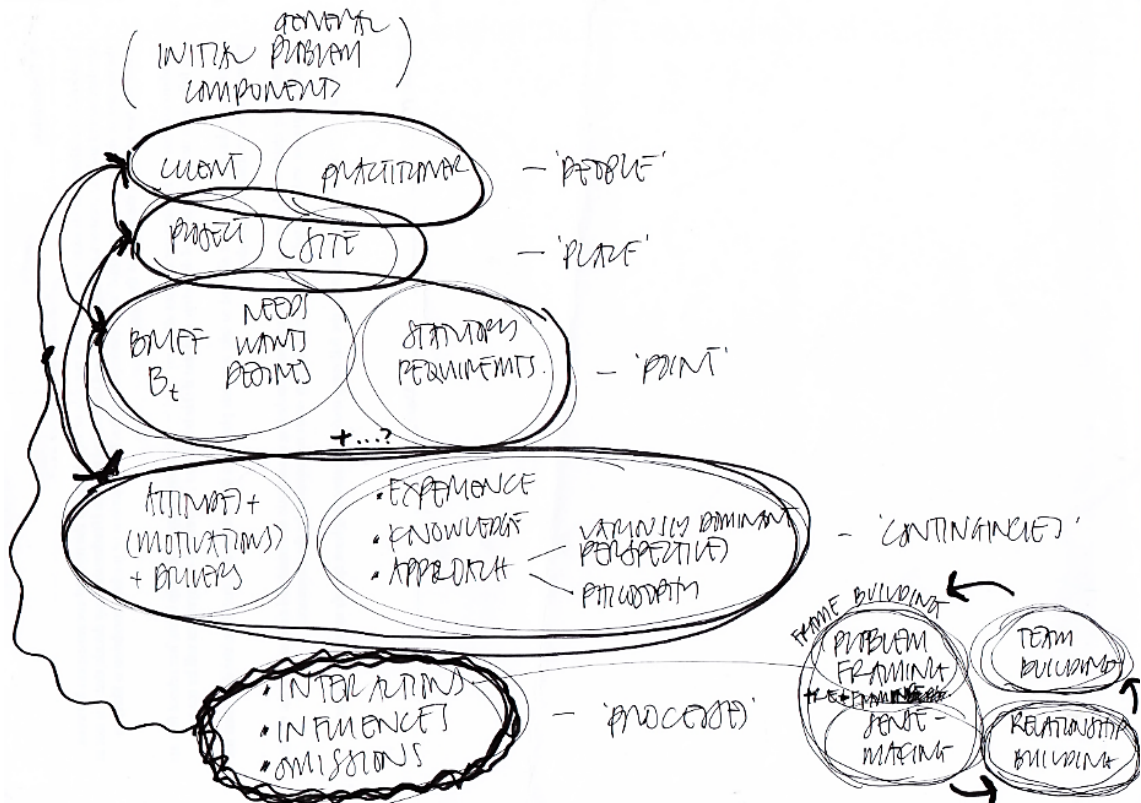 GENERAL
(INITIAL PROBLEM
COMPONENTS)
CLIENT PRACTITIONER – 'PEOPLE'
PROJECT SITE – 'PLACE'
NEEDS
BRIEF WANTS
Bt DESIRES
STATUTORY
REQUIREMENTS.
– 'POINT'
+...?
ATTITUDES +
(MOTIVATIONS)
+ DRIVERS
• EXPERIENCE
• KNOWLEDGE
• APPROACH
VARIOUSLY DOMINANT
PERSPECTIVES
PHILOSOPHY
– 'CONTINGENCIES'
• INTERACTIONS
• INFLUENCES
• OMISSIONS
– 'PROCESSES'
FRAME BUILDING
PROBLEM
FRAMING
SENSE-
MAKING
TEAM
BUILDING
RELATIONSHIP
BUILDING